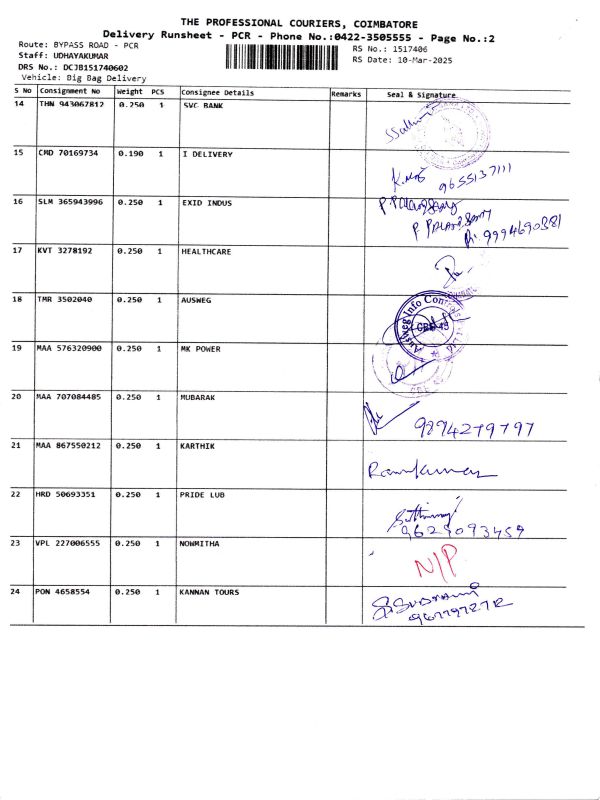 THE PROFESSIONAL COURIERS, COIMBATORE
Delivery Runsheet - PCR - Phone No.:0422-3505555 - Page No.:2
Route: BYPASS ROAD - PCR
RS No.: 1517406
Staff: UDHAYAKUMAR
RS Date: 10-Mar-2025
DRS No.: DCJB151740602
Vehicle: Big Bag Delivery
S No Consignment No Weight PCS Consignee Details Remarks Seal & Signature
14 THN 943067812 0.250 1 SVC BANK
15 CMD 70169734 0.190 1 I DELIVERY
9655137111
16 SLM 365943996 0.250 1 EXID INDUS
9994690381
17 KVT 3278192 0.250 1 HEALTHCARE
18 TMR 3502040 0.250 1 AUSWEG
Ausweg Info Con
CBE-45
19 MAA 576320900 0.250 1 MK POWER
20 MAA 707084485 0.250 1 MUBARAK
9894279797
21 MAA 867550212 0.250 1 KARTHIK
Ramkumar
22 HRD 50693351 0.250 1 PRIDE LUB
9629093459
23 VPL 227006555 0.250 1 NOWMITHA
N/P
24 PON 4658554 0.250 1 KANNAN TOURS